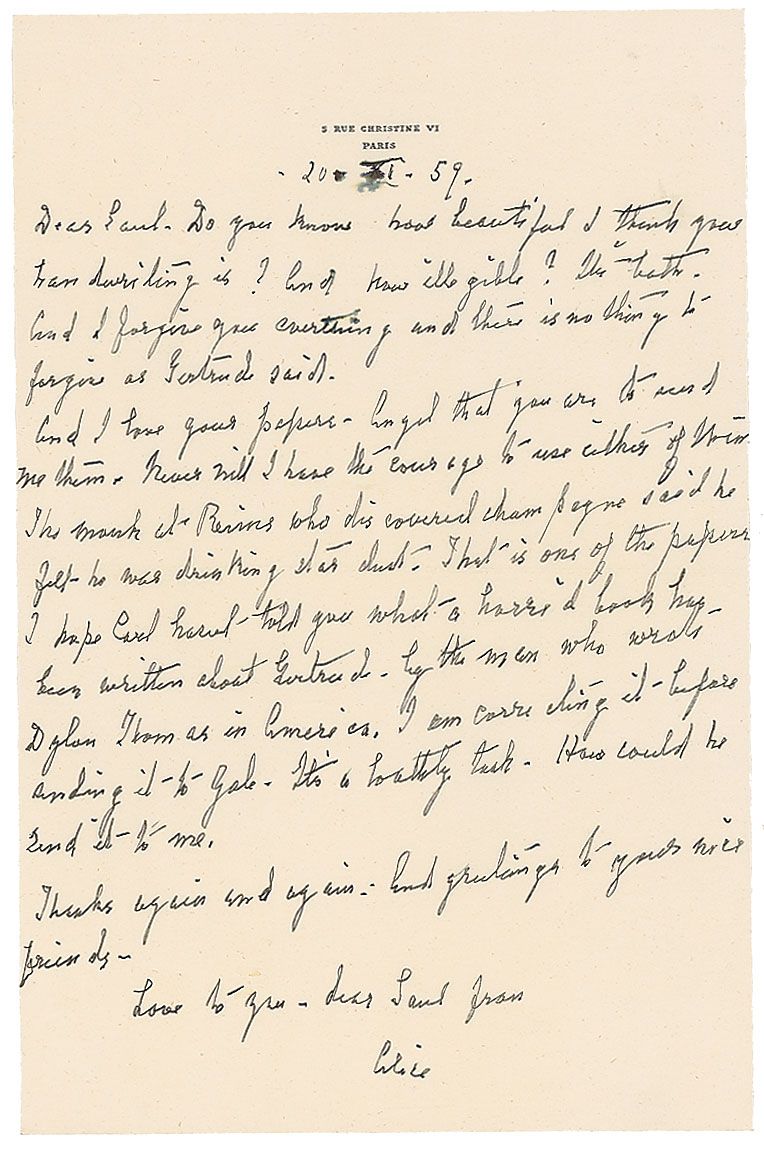 5 RUE CHRISTINE VI
PARIS
- 20 - XI - 59.
Dear Saul - Do you know how beautiful I think your
handwriting is? And how illegible? It's both.
And I forgive you everthing and there is nothing to
forgive as Gertrude said.
And I love your papers - Angel that you are to send
me them. Never will I have the courage to use either of them
The monk at Reims who discovered champagne said he
felt he was drinking star dust - That is one of the papers
I hope Carl hasn't told you what a horrid book has
been written about Gertrude - by the man who wrote
Dylan Thomas in America. I am correcting it before
sending it to Yale - It's a loathly task - How could he
send it to me.
Thanks again and again - And greetings to your nice
friends -
Love to you - dear Saul from
Alice